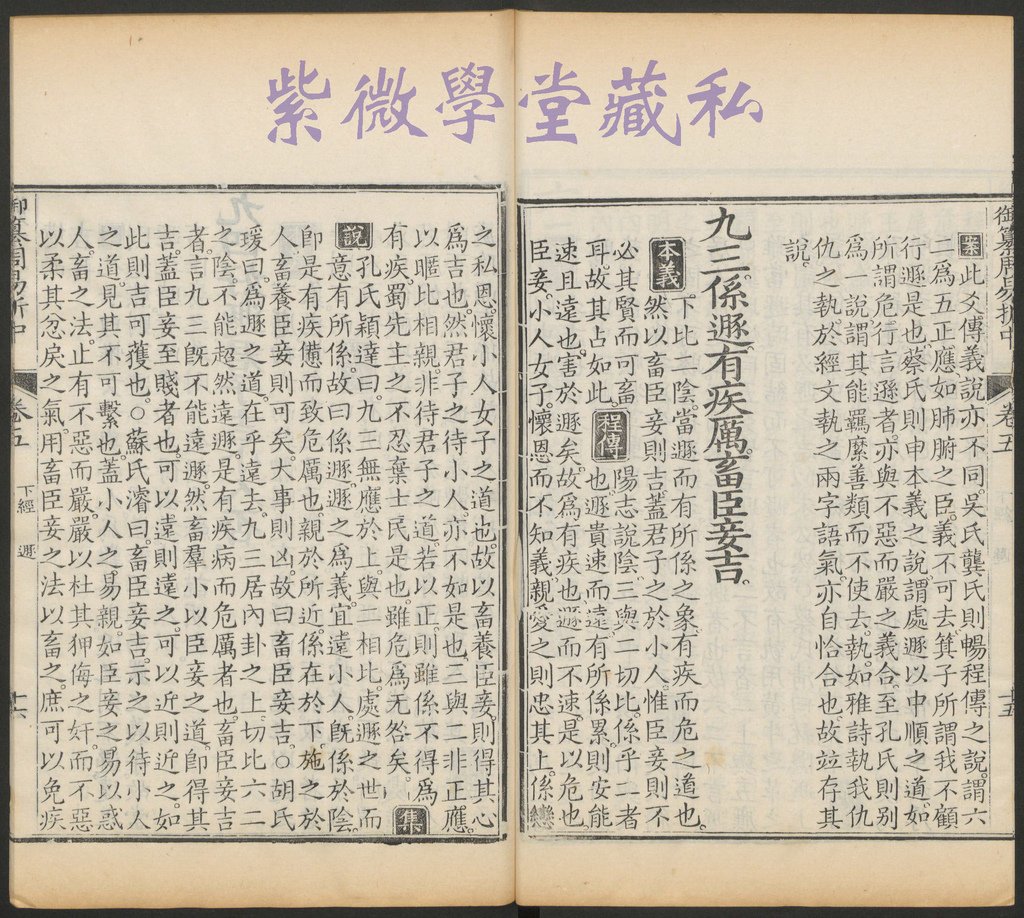 紫微學堂藏私
御纂周易折中 卷五 十五
案此爻傳義說亦不同。吳氏龔氏則暢程傳之說。謂六
二爲五正應。如肺腑之臣。義不可去。箕子所謂我不顧
行遯是也。蔡氏則申本義之說。謂處遯以中順之道。如
所謂危行言遜者。亦與不惡而嚴之義合。至孔氏則別
爲一說。謂其能羈縻善類而不使去。執如雅詩執我仇
仇之執。於經文執之兩字語氣。亦自恰合也。故並存其
說。
九三係遯有疾厲畜臣妾吉。
本義下比二陰。當遯而有所係之象。有疾而危之道也。
然以畜臣妾則吉。蓋君子之於小人。惟臣妾則不
必其賢而可畜耳。故其占如此。
程傳陽志說陰。三與二切比。係乎二者
也。遯貴速而遠。有所係累。則安能
速且遠也。害於遯矣。故爲有疾也。遯而不速。是以危也。
臣妾。小人女子。懷恩而不知義。親愛之則忠其上。係戀
之私恩。懷小人女子之道也。故以畜養臣妾。則得其心
爲吉也。然君子之待小人。亦不如是也。三與二非正應。
以暱比相親。非待君子之道。若以正。則雖係不得爲
有疾。蜀先主之不忍棄士民是也。雖危爲无咎矣。
集說孔氏穎達曰。九三無應於上。與二相比。處遯之世。而
意有所係。故曰係遯。遯之爲義。宜遠小人。旣係於陰。
卽是有疾憊而致危厲也。親於所近。係在於下。施之於
人。畜養臣妾則可矣。大事則凶。故曰畜臣妾吉。○胡氏
瑗曰。爲遯之道。在乎遠去。九三居內卦之上。切比六二
之陰。不能超然遠遯。是有疾病而危厲者也。畜臣妾吉
者。言九三旣不能遠遯。然畜羣小以臣妾之道。卽得其
吉。蓋臣妾至賤者也。可以遠則遠之。可以近則近之。如
此則吉可獲也。○蘇氏濬曰。畜臣妾吉。示之以待小人
之道。見其不可繫也。蓋小人之易親。如臣妾之易以惑
人。畜之之法。止有不惡而嚴。嚴以杜其狎侮之奸。而不惡
以柔其忿戾之氣。用畜臣妾之法以畜之。庶可以免疾
御纂周易折中 卷五 下經 遯 十六